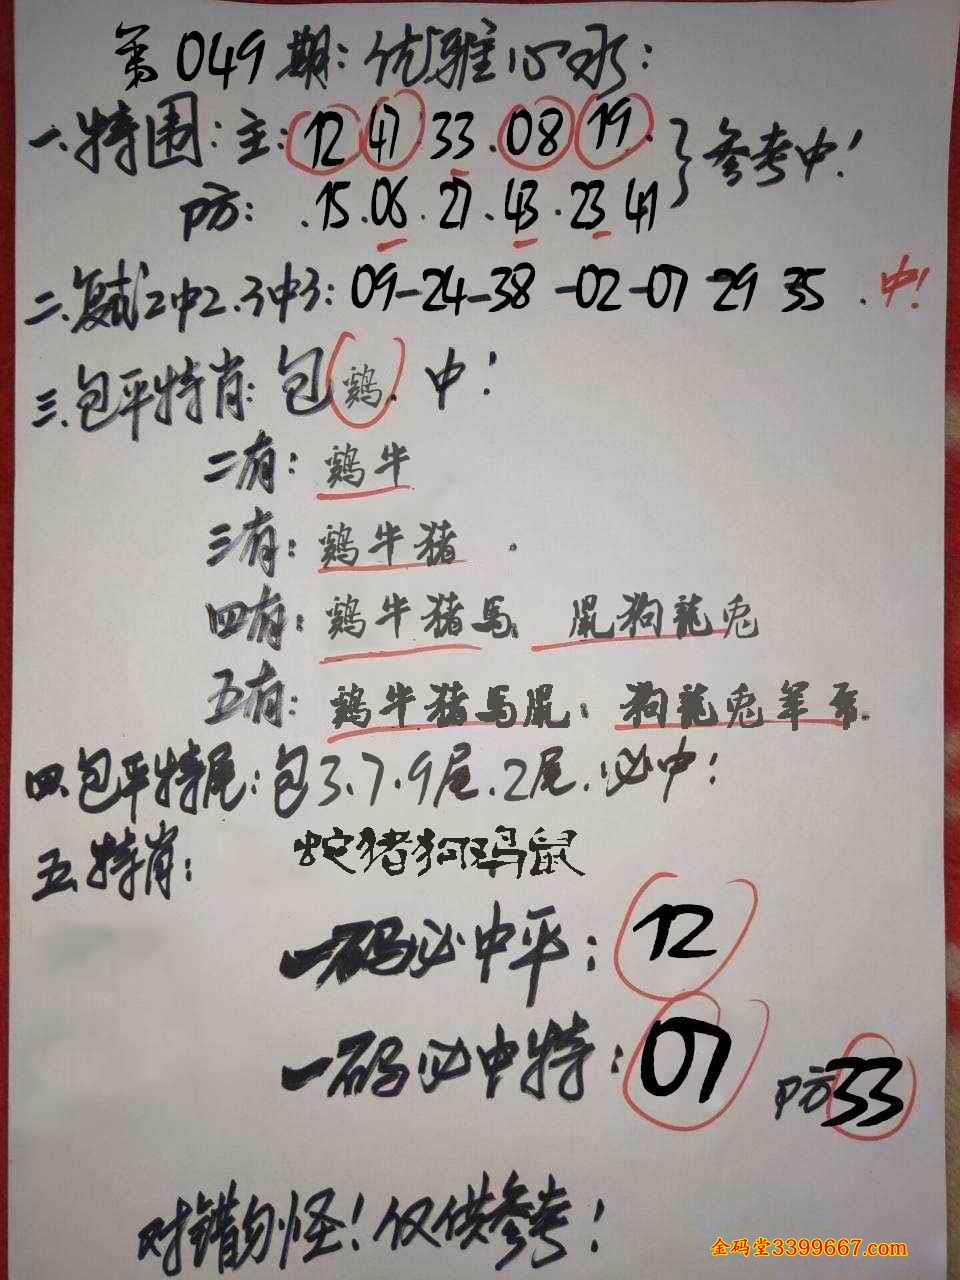 第049期:优雅心水:
一.特围:主:12 47 33.08 19.}参考中!
防: .15.06.27.43.23 41
二.复式2中2.3中3:09-24-38-02-07-29 35.中!
三.包平特肖:包鷄.中!
二有:鷄牛
三有:鷄牛猪.
四有:鷄牛猪馬. 鼠狗龍兎
五有:鷄牛猪馬鼠:狗龍兎羊
四.包平特尾:包3.7.9尾.2尾.必中:
五.特肖: 蛇猪狗鸡鼠
一码必中平:12
一码必中特:07 防33
对错勿怪!仅供参考!
金码堂3399667.com